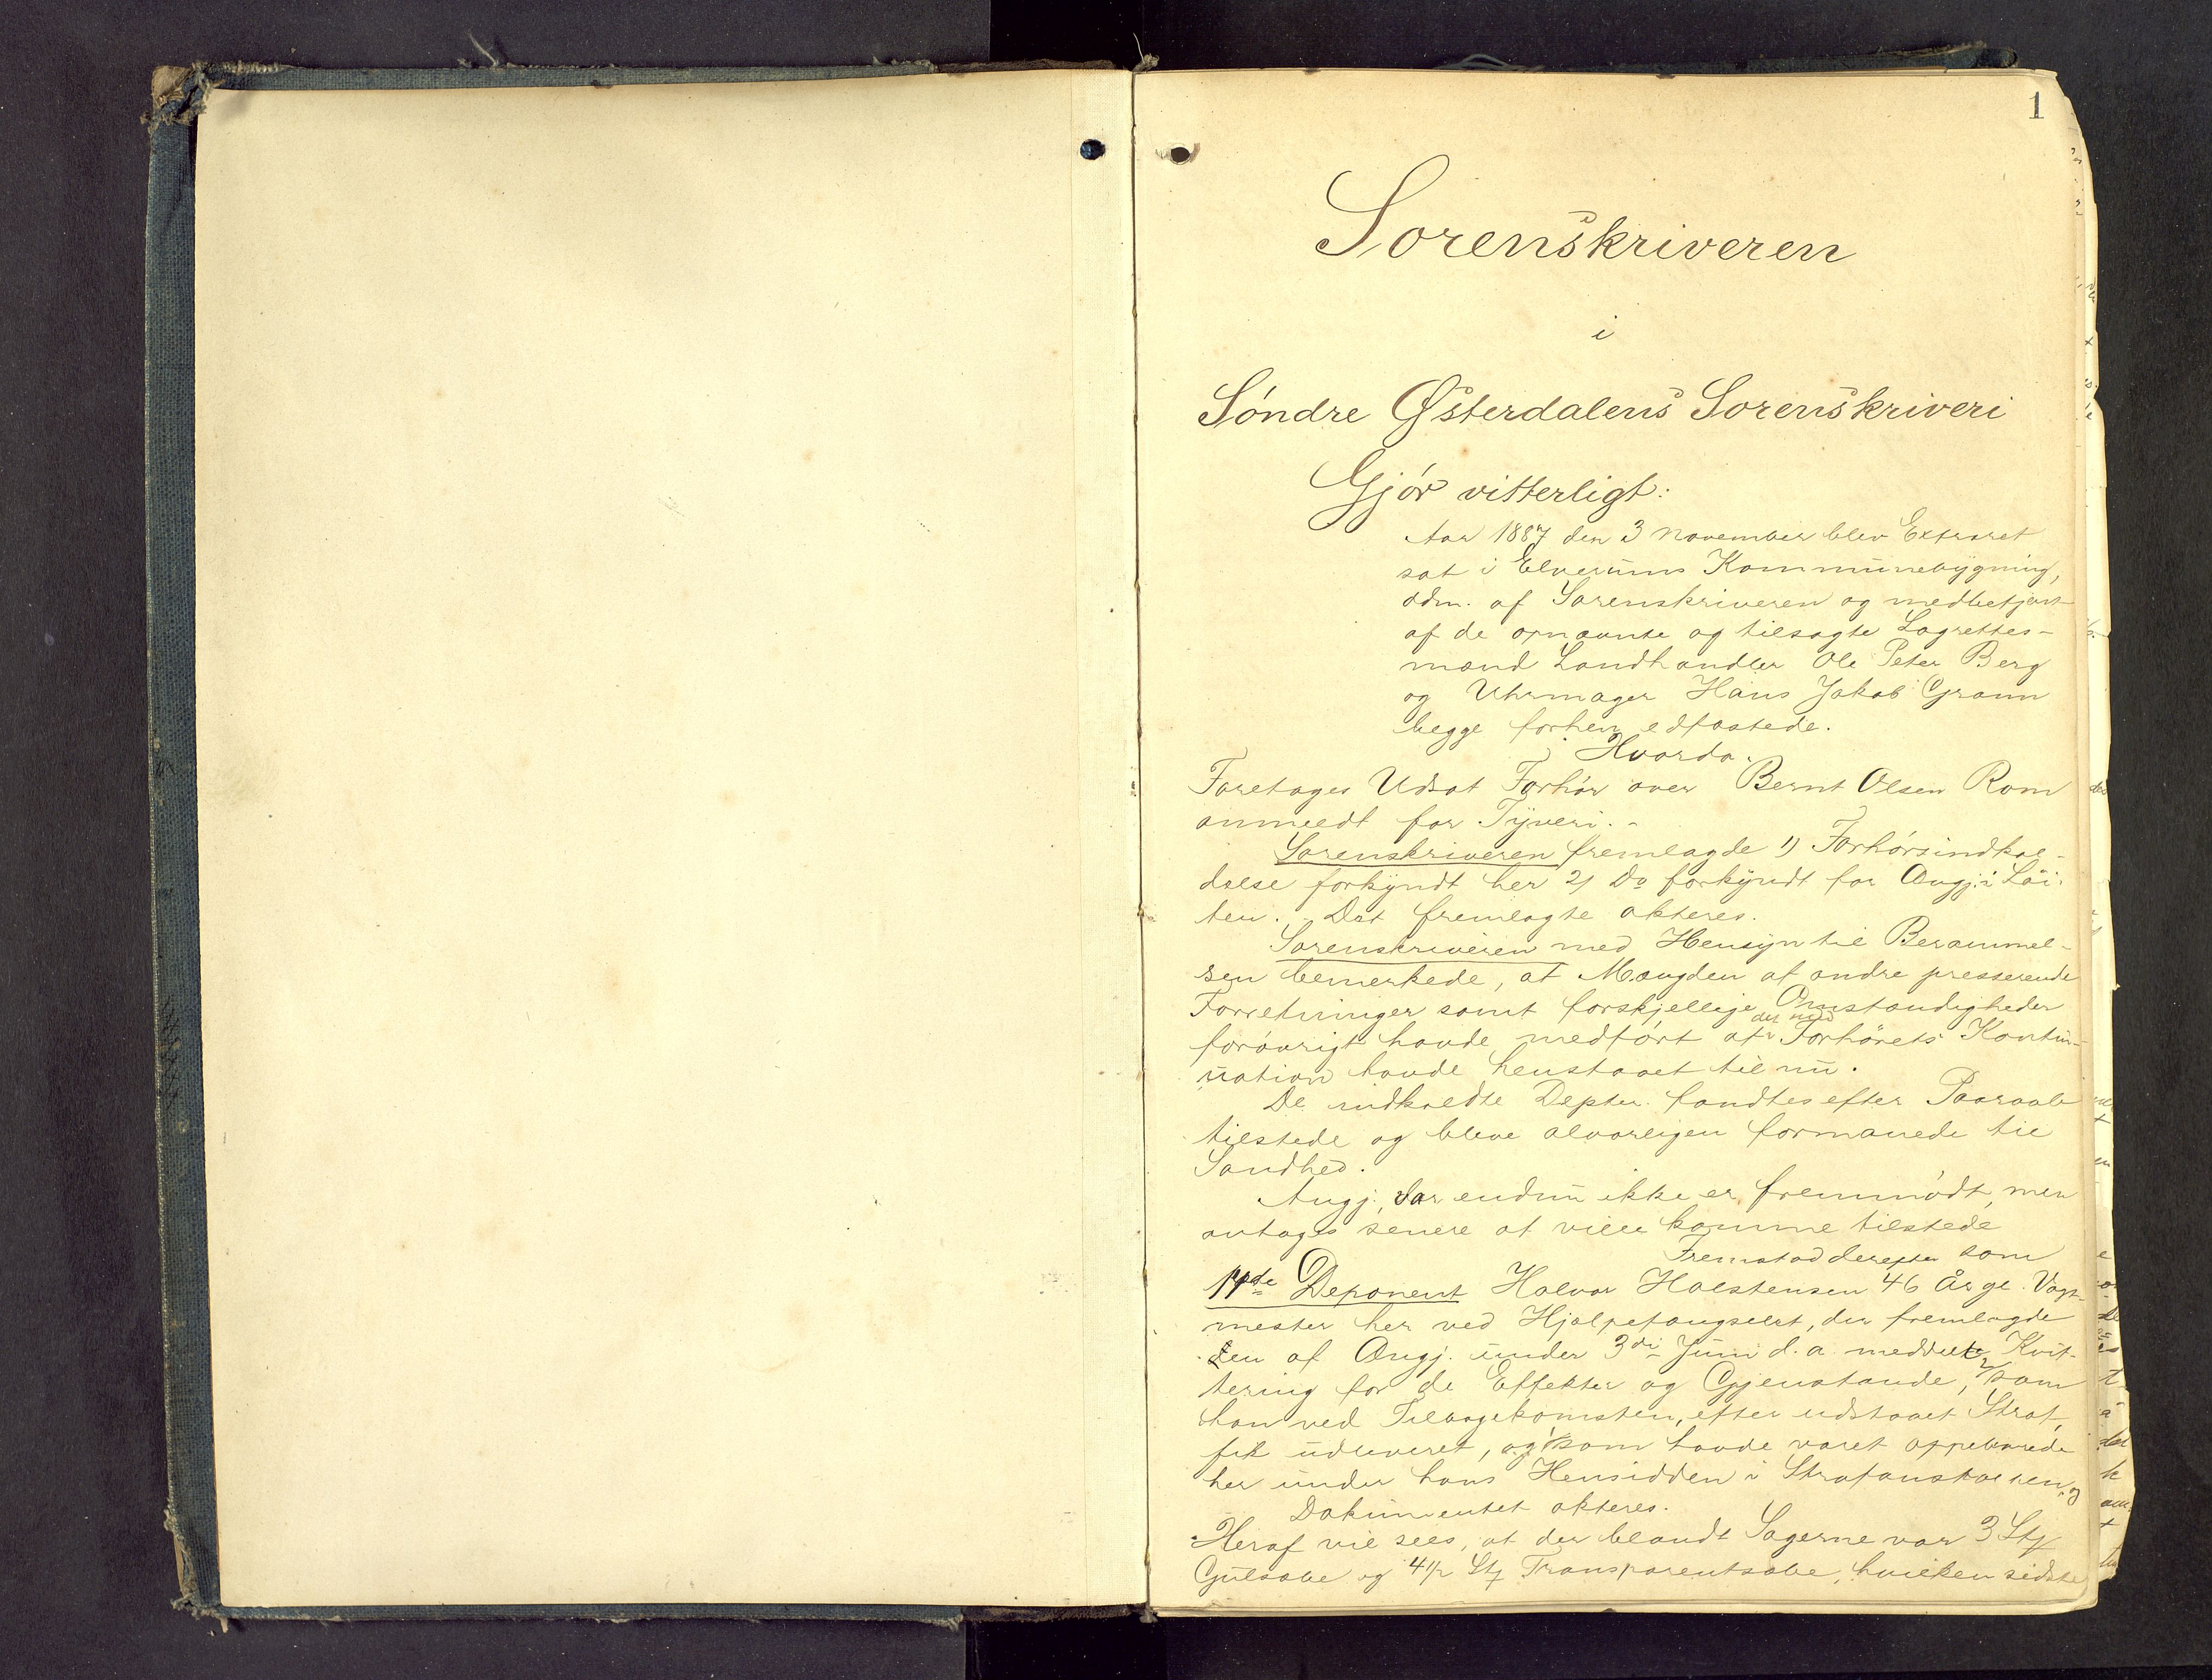 1
Sorenskriveren
i
Søndre Østerdalens Sorenskriveri
Gjør vitterligt:
Aar 1887 den 3 November blev Extraret
sat i Elverums Kommunebygning,
adm. af Sorenskriveren og medbetjent
af de opnævnte og tilsagte Lagrettes-
mænd Landhandler Ole Peter Berg
og Uhrmager Hans Jakob Grann
begge forhen edfæstede.
Hvorda
Foretages Udsat Forhør over Bernt Olsen Rom
anmeldt for Tyveri. -
Sorenskriveren fremlagde 1) Forhørsindkal-
delse forkyndt her 2) Do forkyndt for Angj. i Løi-
ten. - Det fremlagte akteres.
Sorenskriveren med Hensyn til Berammel-
sen bemerkede, at Mængden af andre presserende
Forretninger samt forskjellige Omstændigheder
forøvrigt havde medført at der med Forhørets Kontin-
uation havde henstaaet til nu.
De indkaldte Depter fandtes efter Paaraab
tilstede og bleve alvorligen formanede til
Sandhed.
Angj., der endnu ikke er fremmødt, men
antages senere at ville komme tilstede
Fremstod derefter som
11te Deponent Halvor Halstensen 46 År gl. Vagt-
mester her ved Hjælpefængselet, der fremlagde
den af Angj. under 3die Juni d. a. meddelte Kvit-
tering for de Effekter og Gjenstande, som
han ved Tilbagekomsten, efter udstaaet Straf,
fik udleveret, og som havde været oppebevarede
her under hans Hensidden i Strafanstalten.
Dokumentet akteres.
Heraf vil sees, at der blandt Sagerne var 3 Stk
Gulsæbe og 4½ Stk Transparentsæbe, hvilken sidste